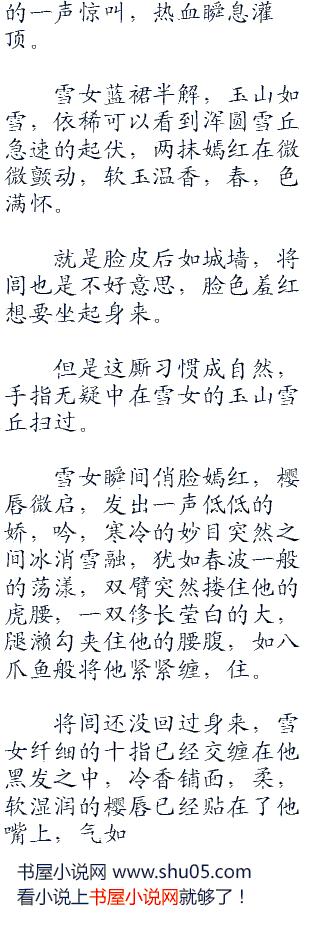 的一声惊叫，热血瞬息灌
顶。
雪女蓝裙半解，玉山如
雪，依稀可以看到浑圆雪丘
急速的起伏，两抹嫣红在微
微颤动，软玉温香，春，色
满怀。
就是脸皮后如城墙，将
闾也是不好意思，脸色羞红
想要坐起身来。
但是这厮习惯成自然，
手指无疑中在雪女的玉山雪
丘扫过。
雪女瞬间俏脸嫣红，樱
唇微启，发出一声低低的
娇，吟，寒冷的妙目突然之
间冰消雪融，犹如春波一般
的荡漾，双臂突然搂住他的
虎腰，一双修长莹白的大，
腿濑勾夹住他的腰腹，如八
爪鱼般将他紧紧缠，住。
将闾还没回过身来，雪
女纤细的十指已经交缠在他
黑发之中，冷香铺面，柔，
软湿润的樱唇已经贴在了他
嘴上，气如
书屋小说网 www.shu05.com
看小说上书屋小说网就够了！